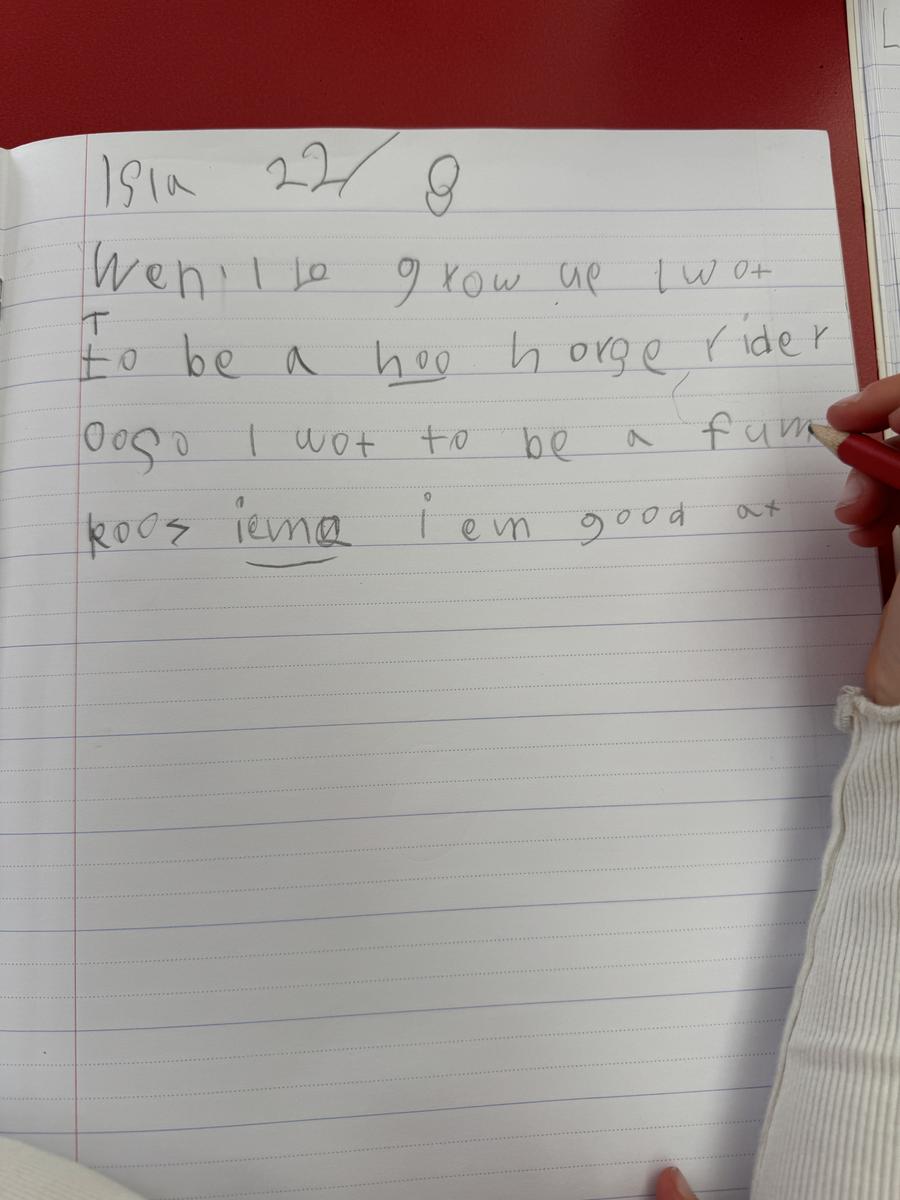 Isla 22/8
Wen I to grow up I wot
T
to be a hoo horge rider
ooso I wot to be a fum
koos iema i em good at